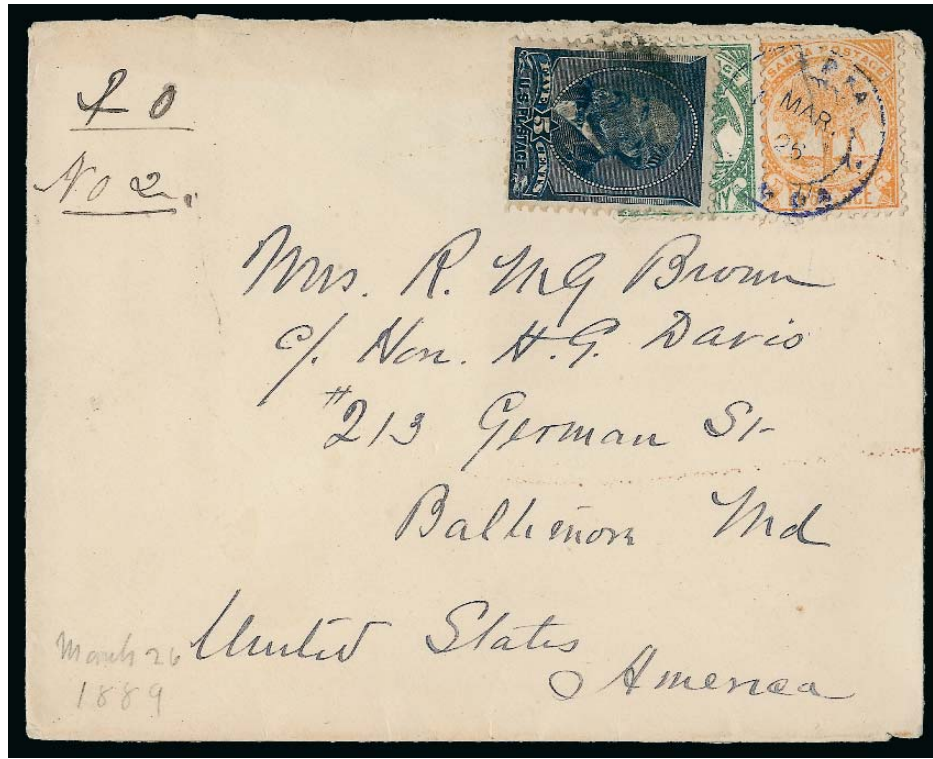 No 2.
FIVE 5 CENTS
U.S. POSTAGE
SAMOA POSTAGE
MAR.
Mrs. R. McG Brown
c/. Hon. H. G. Davis
#213 German St
Baltimore Md
United States
America
March 26
1889